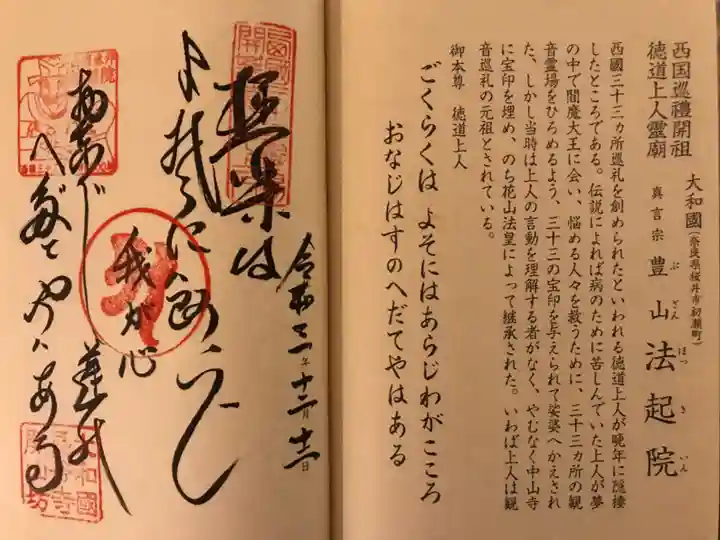 西国巡禮開祖
徳道上人霊廟
大和國(奈良県桜井市初瀬町)
真言宗 豊山 法起院
ぶざん ほっきいん
西國三十三ヵ所巡礼を創められたといわれる徳道上人が晩年に隠棲
したところである。伝説によれば病のために苦しんでいた上人が夢
の中で閻魔大王に会い、悩める人々を救うために、三十三ヵ所の観
音霊場をひろめるよう、三十三の宝印を与えられて娑婆へかえされ
た、しかし当時は上人の言動を理解する者がなく、やむなく中山寺
に宝印を埋め、のち花山法皇によって継承された。いわば上人は観
音巡礼の元祖とされている。
御本尊 徳道上人
ごくらくは よそにはあらじわがこころ
おなじはすのへだてやはある
令和三年十二月十二日
極楽は
よそにハあらじ
我が心
蓮の
へだてやハある